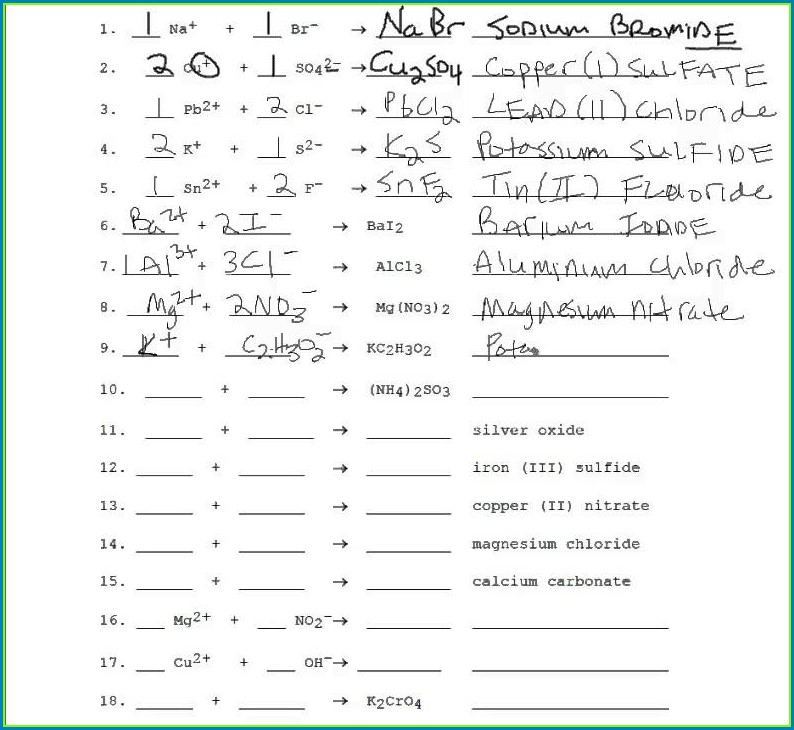 1. 1 Na+ + 1 Br- → NaBr SODIUM BROMIDE
2. 2 Cu+ + 1 SO4 2- → Cu2SO4 Copper (I) SULFATE
3. 1 Pb2+ + 2 Cl- → PbCl2 LEAD (II) Chloride
4. 2 K+ + 1 S2- → K2S Potassium SULFIDE
5. 1 Sn2+ + 2 F- → SnF2 Tin (II) Fluoride
6. Ba2+ + 2I- → BaI2 BARIUM IODIDE
7. 1Al3+ + 3Cl- → AlCl3 Aluminium chloride
8. Mg2+ + 2NO3- → Mg(NO3)2 Magnesium nitrate
9. K+ + C2H3O2- → KC2H3O2 Potas
10. ____ + ____ → (NH4)2SO3 ____
11. ____ + ____ → ____ silver oxide
12. ____ + ____ → ____ iron (III) sulfide
13. ____ + ____ → ____ copper (II) nitrate
14. ____ + ____ → ____ magnesium chloride
15. ____ + ____ → ____ calcium carbonate
16. __ Mg2+ + __ NO2- → ____ ____
17. __ Cu2+ + __ OH- → ____ ____
18. ____ + ____ → K2CrO4 ____